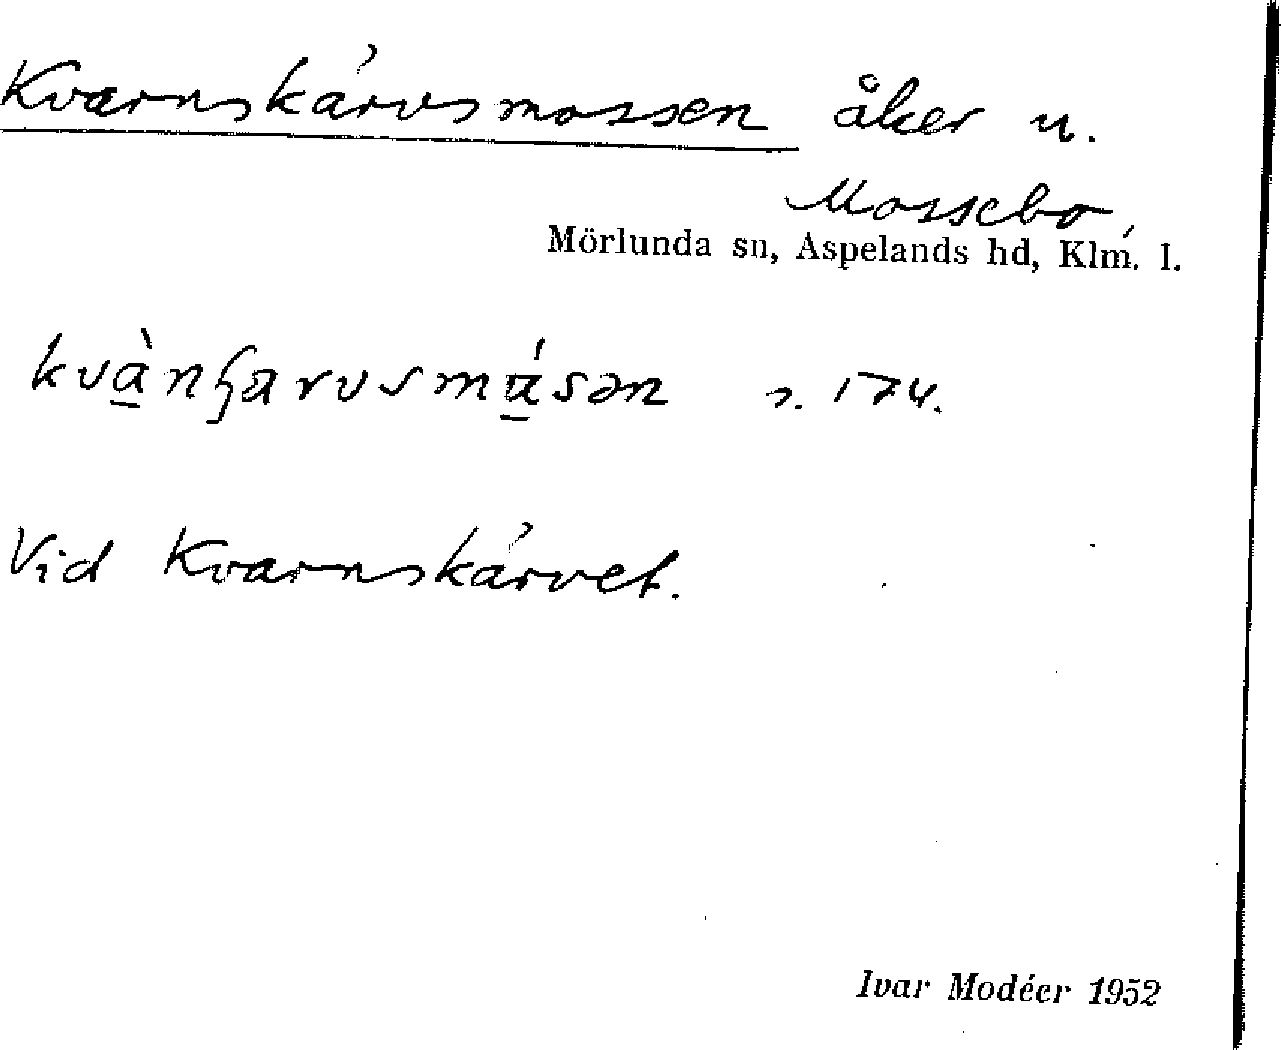 Kvarnskärvsmossen åker u.
Mossebo,
Mörlunda sn, Aspelands hd, Klm. l.
s. 174.
Vid Kvarnskärvet.
Ivar Modéer 1952